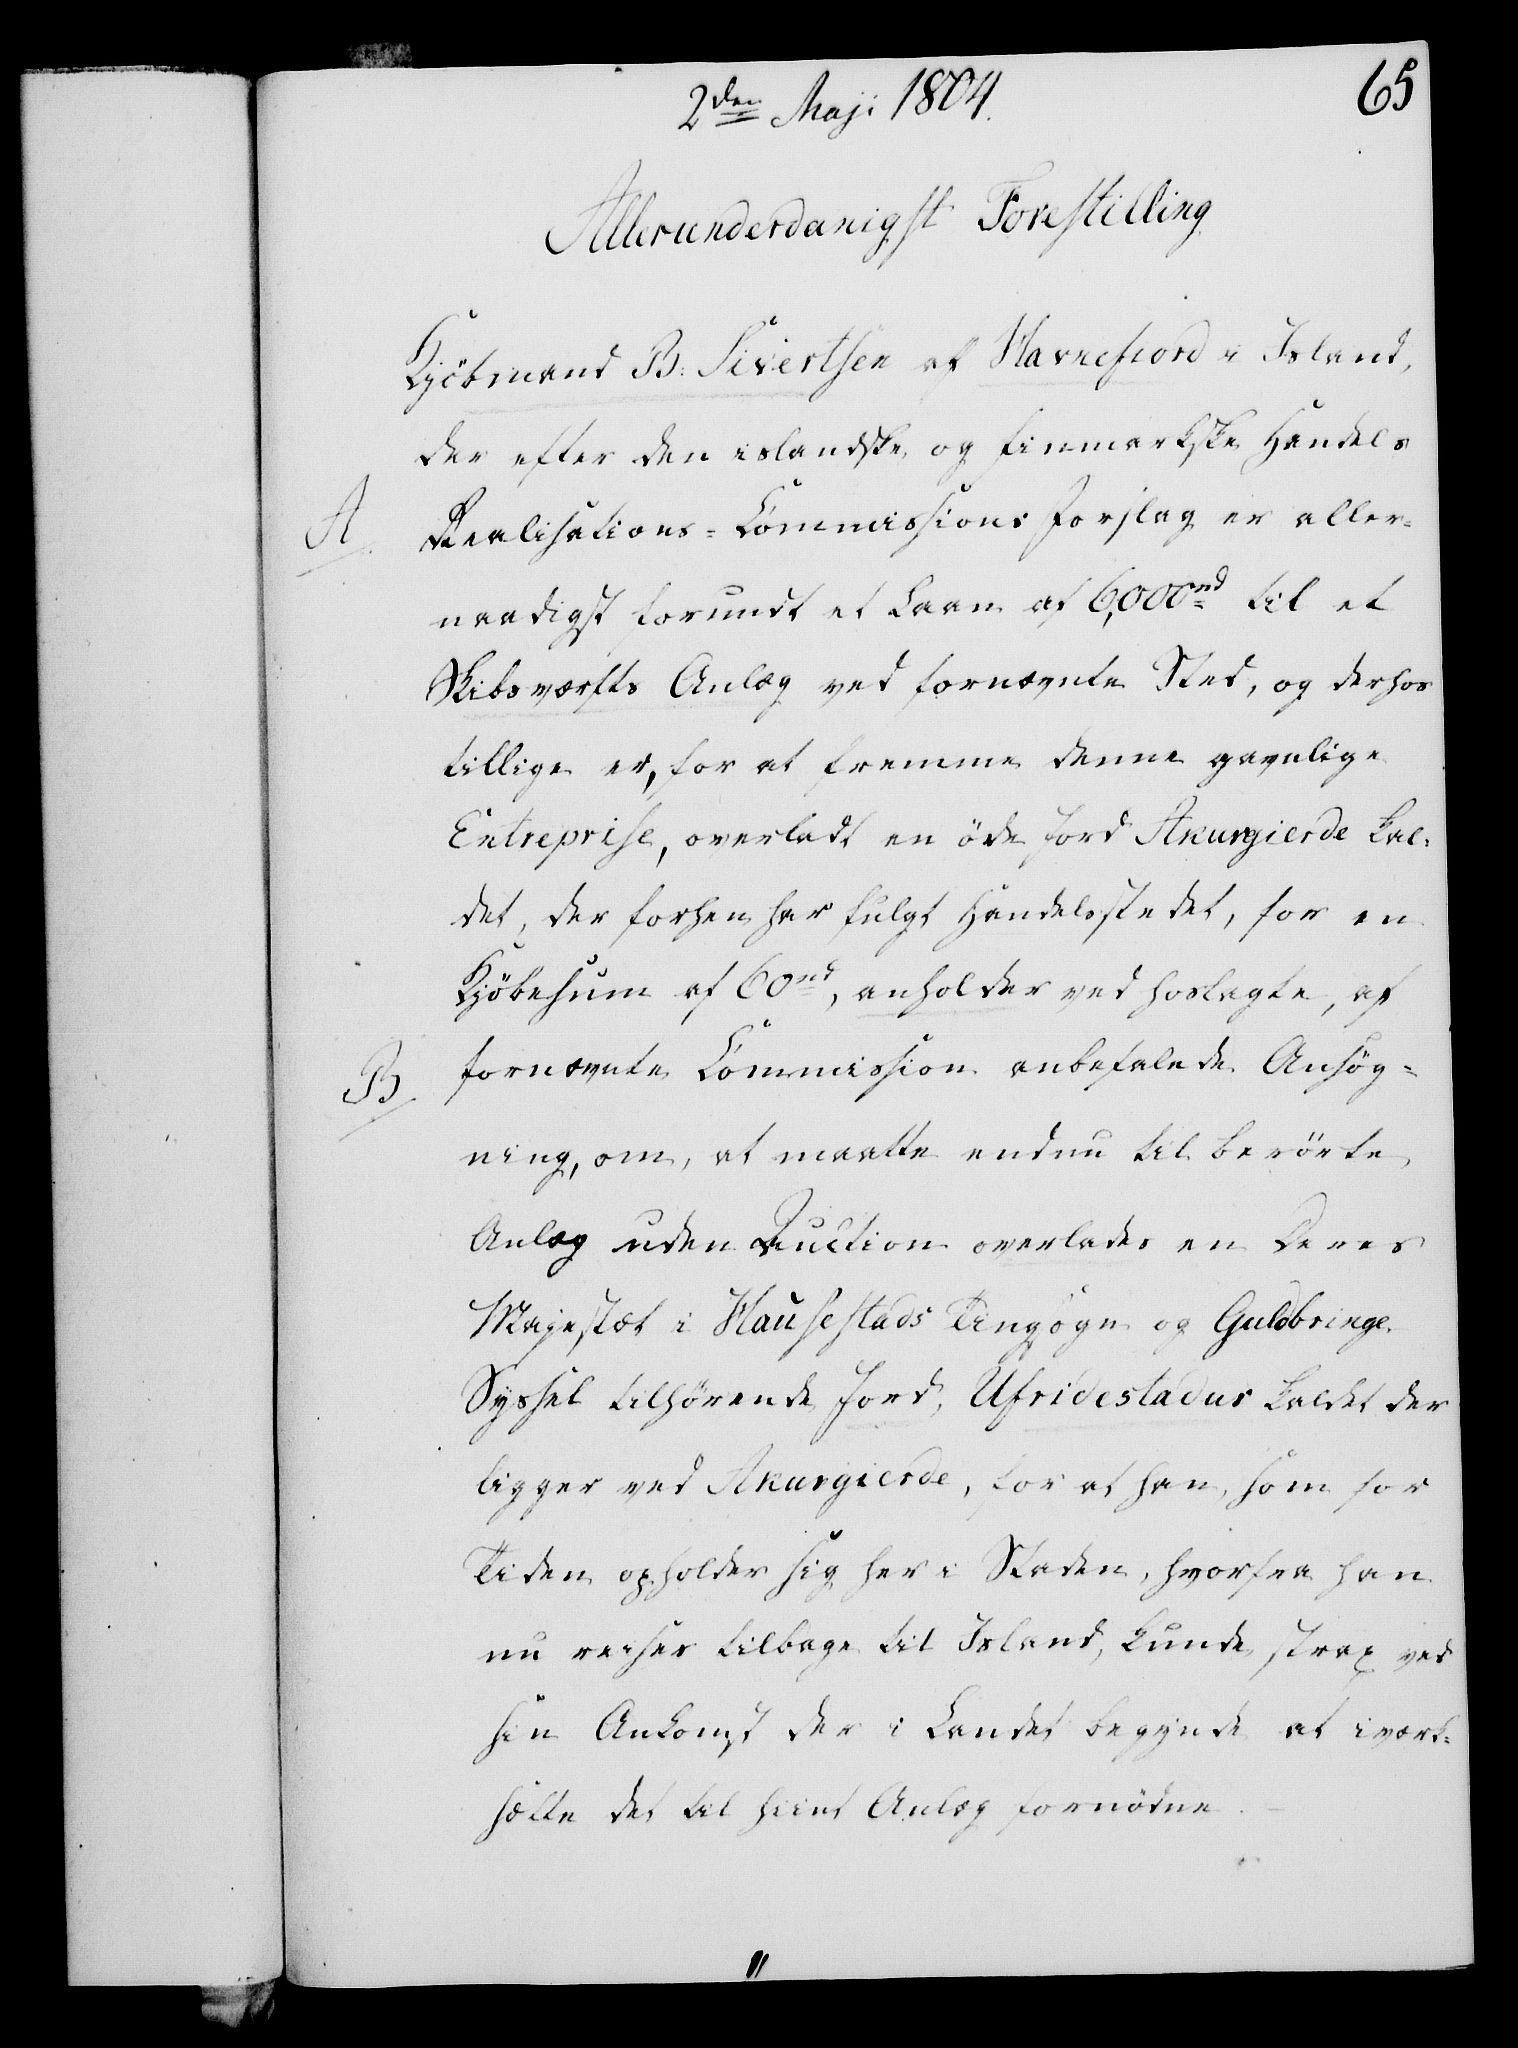 2den Maji 1804.
65
Allerunderdanigst Forestilling
Kjöbmand B. Sivertsen af Havnefiord i Island,
der efter den islandske og finmarkske Handels
A
Realisations-Commissions Forslag er aller-
naadigst forundt et Laan af 6,000 rd til et
Skibsværfts Anlæg ved fornævnte Sted, og derhos
tillige er, for at fremme denne gavnlige
Entreprise, overladt en öde Jord Akurgierde kal-
det, der forhen har fulgt Handelsstedet, for en
Kjöbesum af 60 rd, anholder ved hoslagte, af
B
fornævnte Commission anbefalede Ansög-
ning, om, at maatte endnu til berörte
Anlæg uden Auction overlades en Deres
Majestæt i Hausestads Tingsogn og Guldbringe
Syssel tilhörende Jord, Ufridestadur kaldet der
ligger ved Akurgierde, for at han, som for
Tiden opholder sig her i Staden, hvorfra han
nu reiser tilbage til Island, kunde strax ved
sin Ankomst der i Landet begynde at iværk-
sætte det til hiint Anlæg fornödne. -